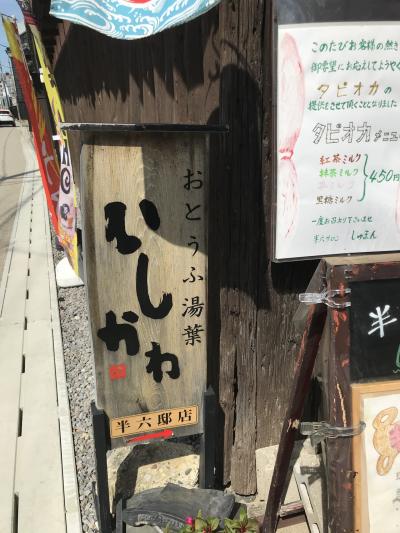 おとうふ湯葉
いしかわ
半六邸店
このたびお客様の熱き
御希望にお応えしてようやく
タピオカの
提供をさせて頂くことになりました
タピオカメニュー
紅茶ミルク
抹茶ミルク
黒糖ミルク
450円
一度お召上り下さいませ
半六サロン しゅまん
半